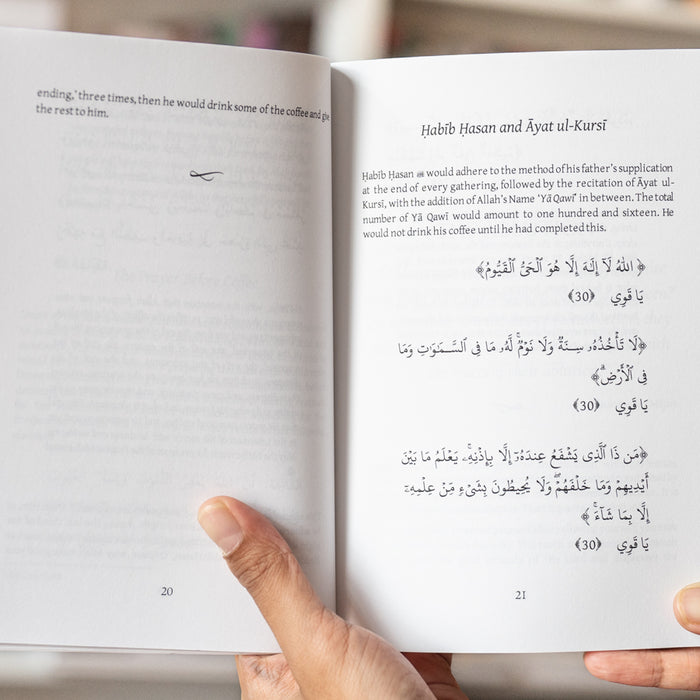 ending,' three times, then he would drink some of the coffee and give
the rest to him.
20
Ḥabīb Ḥasan and Āyat ul-Kursī
Ḥabīb Ḥasan would adhere to the method of his father's supplication
at the end of every gathering, followed by the recitation of Āyat ul-
Kursī, with the addition of Allah's Name 'Yā Qawī' in between. The total
number of Yā Qawī would amount to one hundred and sixteen. He
would not drink his coffee until he had completed this.
﴿ ٱللَّهُ لَآ إِلَـٰهَ إِلَّا هُوَ ٱلْحَىُّ ٱلْقَيُّومُ﴾
يَا قَوِي ﴿30﴾
﴿لَا تَأْخُذُهُۥ سِنَةٌ وَلَا نَوْمٌۚ لَّهُۥ مَا فِى ٱلسَّمَـٰوَٰتِ وَمَا
فِى ٱلْأَرْضِۗ﴾
يَا قَوِي ﴿30﴾
﴿مَن ذَا ٱلَّذِى يَشْفَعُ عِندَهُۥٓ إِلَّا بِإِذْنِهِۦۚ يَعْلَمُ مَا بَيْنَ
أَيْدِيهِمْ وَمَا خَلْفَهُمْۖ وَلَا يُحِيطُونَ بِشَىْءٍ مِّنْ عِلْمِهِۦٓ
إِلَّا بِمَا شَآءَۚ ﴾
يَا قَوِي ﴿30﴾
21